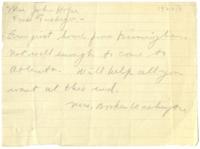 Mrs. John Hope
From Tuskegee.-
Am just home from Birmingham.
Not well enough to come to
Atlanta. Will help all you
want at this end.
Mrs. Booker Washington